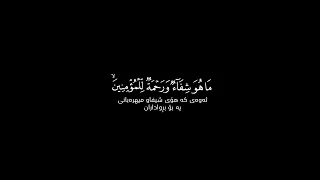 مَا هُوَ شِفَآءٌ وَرَحْمَةٌ لِّلْمُؤْمِنِينَ ۙ
ئەوەی کە هۆی شیفاو میهرەبانی
یە بۆ بڕواداران